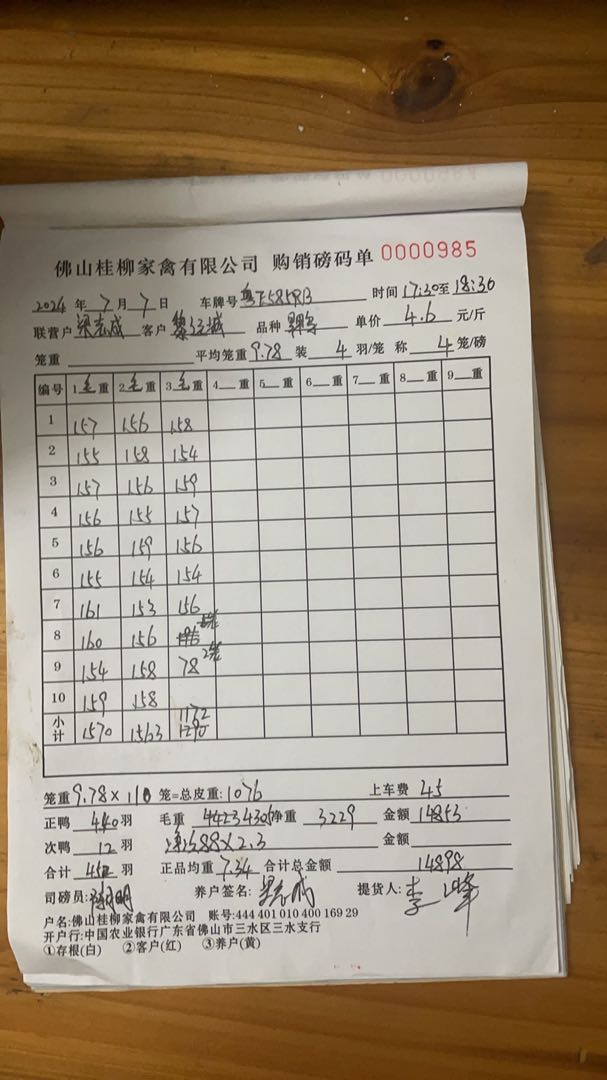 佛山桂柳家禽有限公司 购销磅码单 0000985
2024 年 7 月 7 日 车牌号 时间 17:30至18:30
联营户 梁志成 客户 品种 单价 4.6 元/斤
笼重 平均笼重 9.78 装 4 羽/笼 称 4 笼/磅
编号 1毛重 2毛重 3毛重 4 重 5 重 6 重 7 重 8 重 9 重
1 157 156 158
2 155 158 154
3 157 156 159
4 156 155 157
5 156 159 156
6 155 154 154
7 161 153 156
8 160 156
9 154 158 78 2笼
10 159 158
小计 1570 1563 1172 1290
笼重 9.78×110 笼=总皮重:1076 上车费 45
正鸭 440 羽 毛重 4423 4305 净重 3229 金额 14853
次鸭 12 羽 ×2.3 金额
合计 452 羽 正品均重 7.34 合计总金额 14898
司磅员: 养户签名: 梁志成 提货人:
户名:佛山桂柳家禽有限公司 账号:444 401 010 400 169 29
开户行:中国农业银行广东省佛山市三水区三水支行
①存根(白) ②客户(红) ③养户(黄)